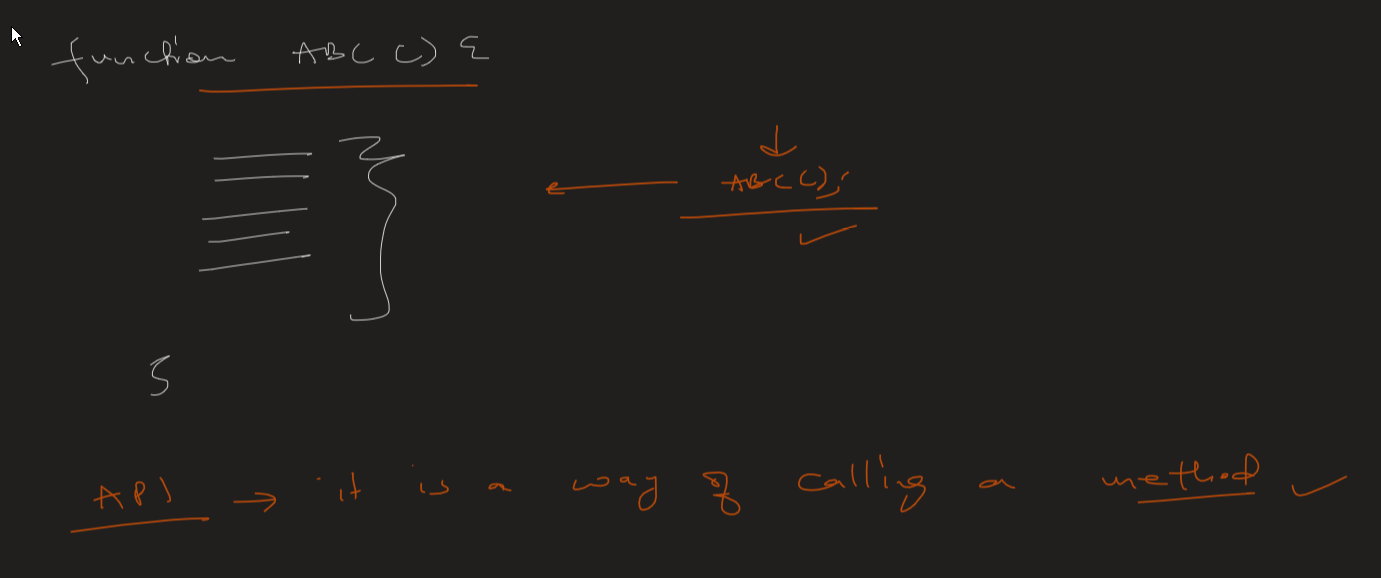 function ABC () {
ABC();
}
API → it is a way of calling a method ✓